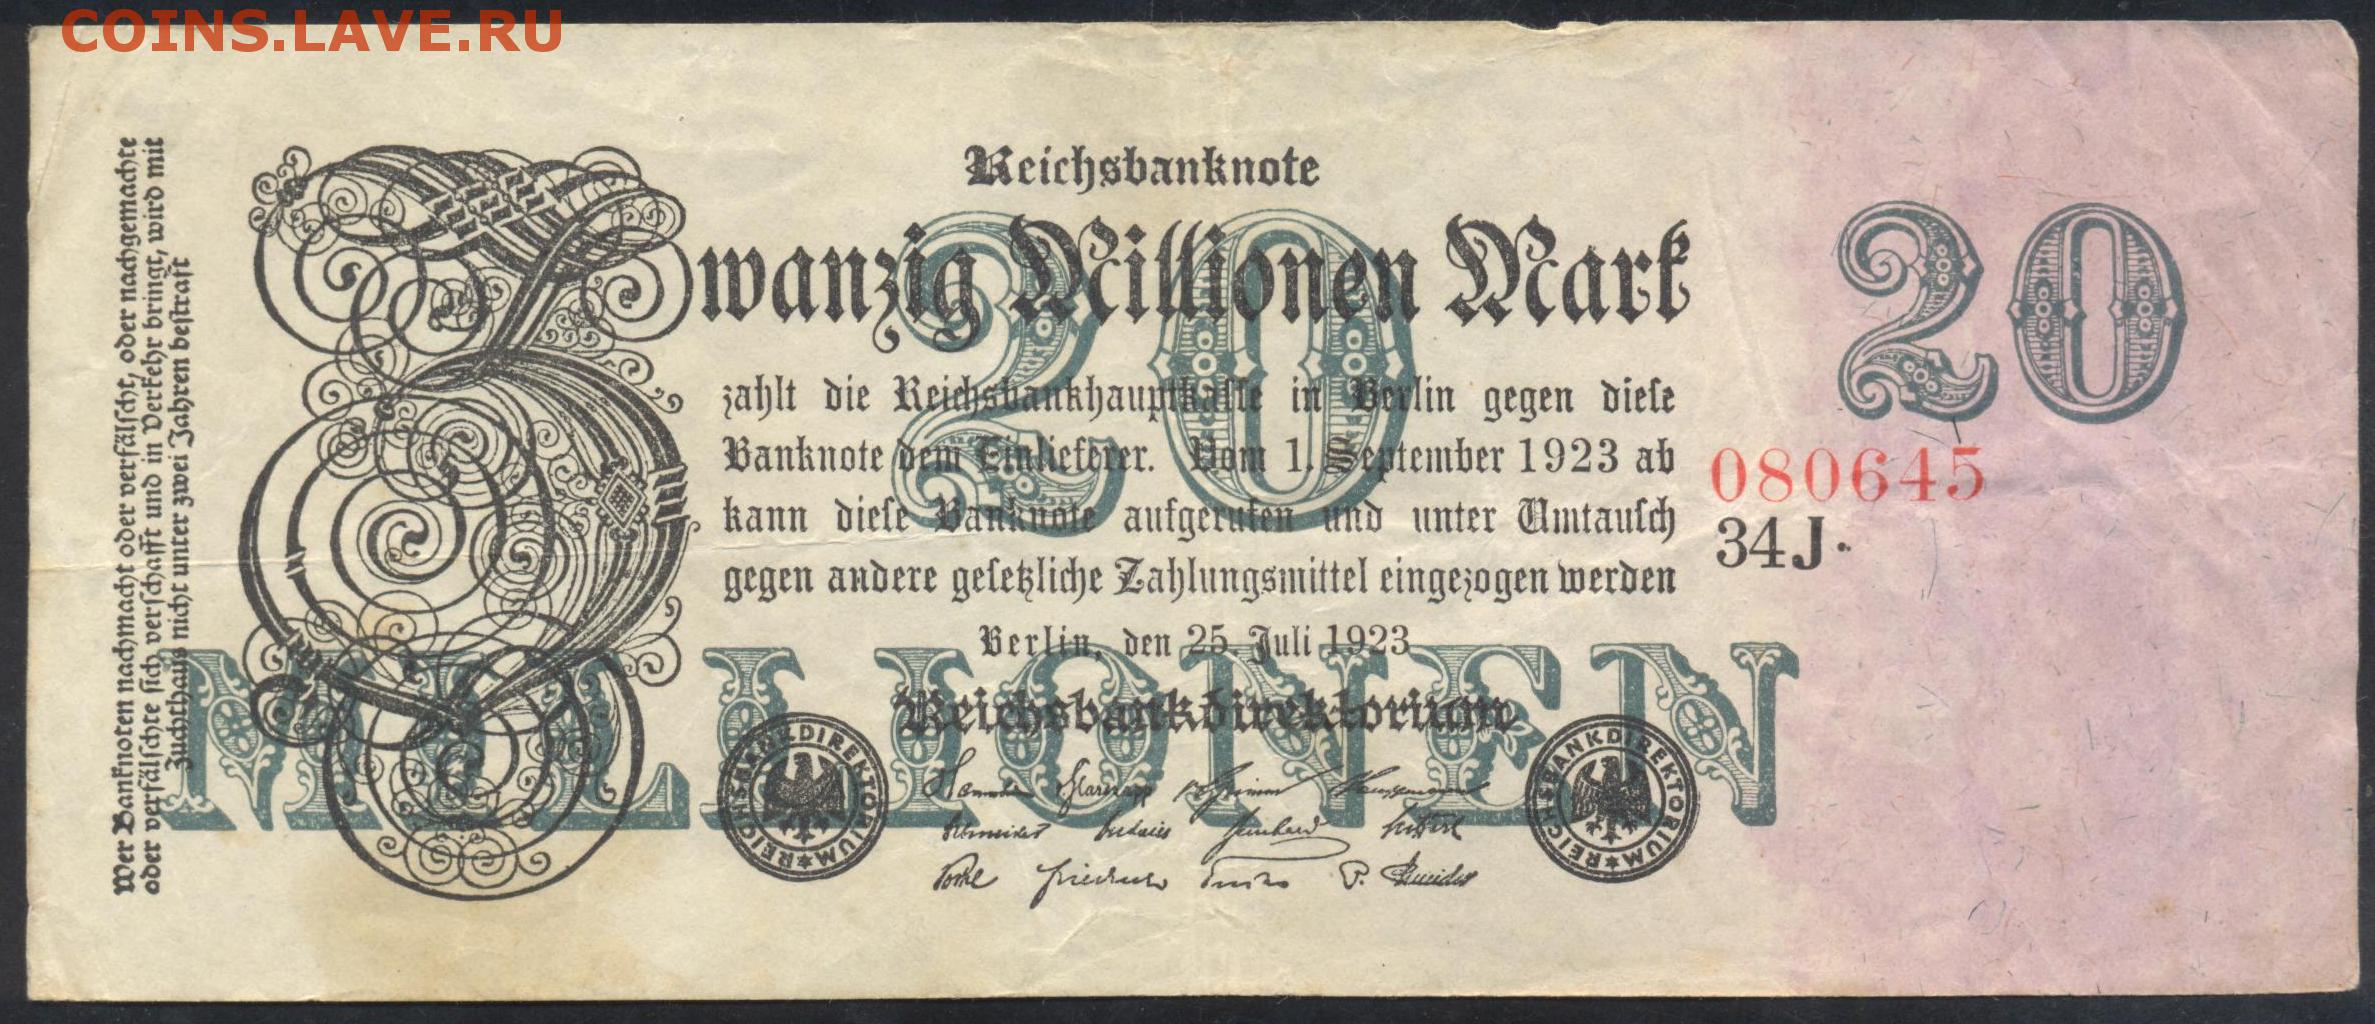 COINS.LAVE.RU
Wer Banknoten nachmacht oder verfälscht, oder nachgemachte
oder verfälschte sich verschafft und in Verkehr bringt, wird mit
Zuchthaus nicht unter zwei Jahren bestraft
Reichsbanknote
Zwanzig Millionen Mark
20
20
zahlt die Reichsbankhauptkasse in Berlin gegen diese
Banknote dem Einlieferer. Vom 1. September 1923 ab
kann diese Banknote aufgerufen und unter Umtausch
gegen andere gesetzliche Zahlungsmittel eingezogen werden
080645
34J·
Berlin, den 25. Juli 1923
MILLIONEN
Reichsbankdirektorium
REICHSBANKDIREKTORIUM
REICHSBANKDIREKTORIUM
Schneider
P. Schneider